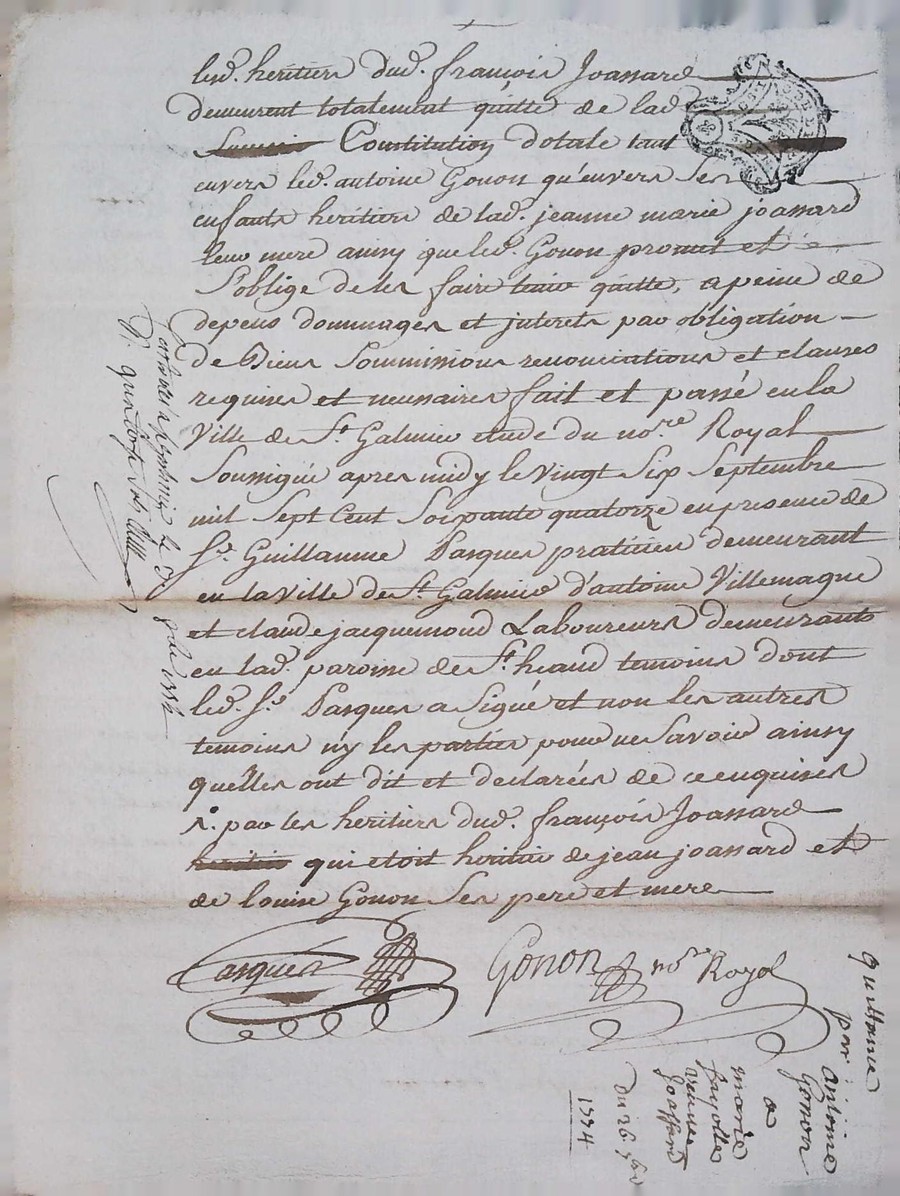 led. heritiers dud. françois Joassard
demeurent totalement quitte de lad.
Constitution dotale tant
envers led. antoine Gonon qu'envers ses
enfants heritiers de lad. jeanne marie joassard
leur mere ainsy que led. Gonon promet et
s'oblige de les faire tenir quitte, a peine de
depens dommages et interets par obligation
de Biens Soumissions renonciations et clauses
requises et necessaires fait et passé en la
Ville de St. Galmier etude du nore. Royal
Soussigné apres midy le Vingt Six Septembre
mil Sept Cent Soixante quatorze en presence de
Sr. Guillaume Pasques praticien demeurant
en la Ville de St Galmier d'antoine Villemagne
et claude jacquemond Laboureurs demeurants
en lad. paroisse de St. heand temoins dont
led. Sr. Pasques a Signé et non les autres
temoins n'y les parties pour ne Savoir ainsy
qu'elles ont dit et declarées de ce enquises
r. par les heritiers dud. françois Joassard
heritier qui etoit heritier de jean joassard et
de louise Gonon Ses pere et mere
Pasques
Gonon nore Royal
quittance
par antoine
Gonon
a
marie
fayolle
veuve
Joassard
du 26 7bre
1774